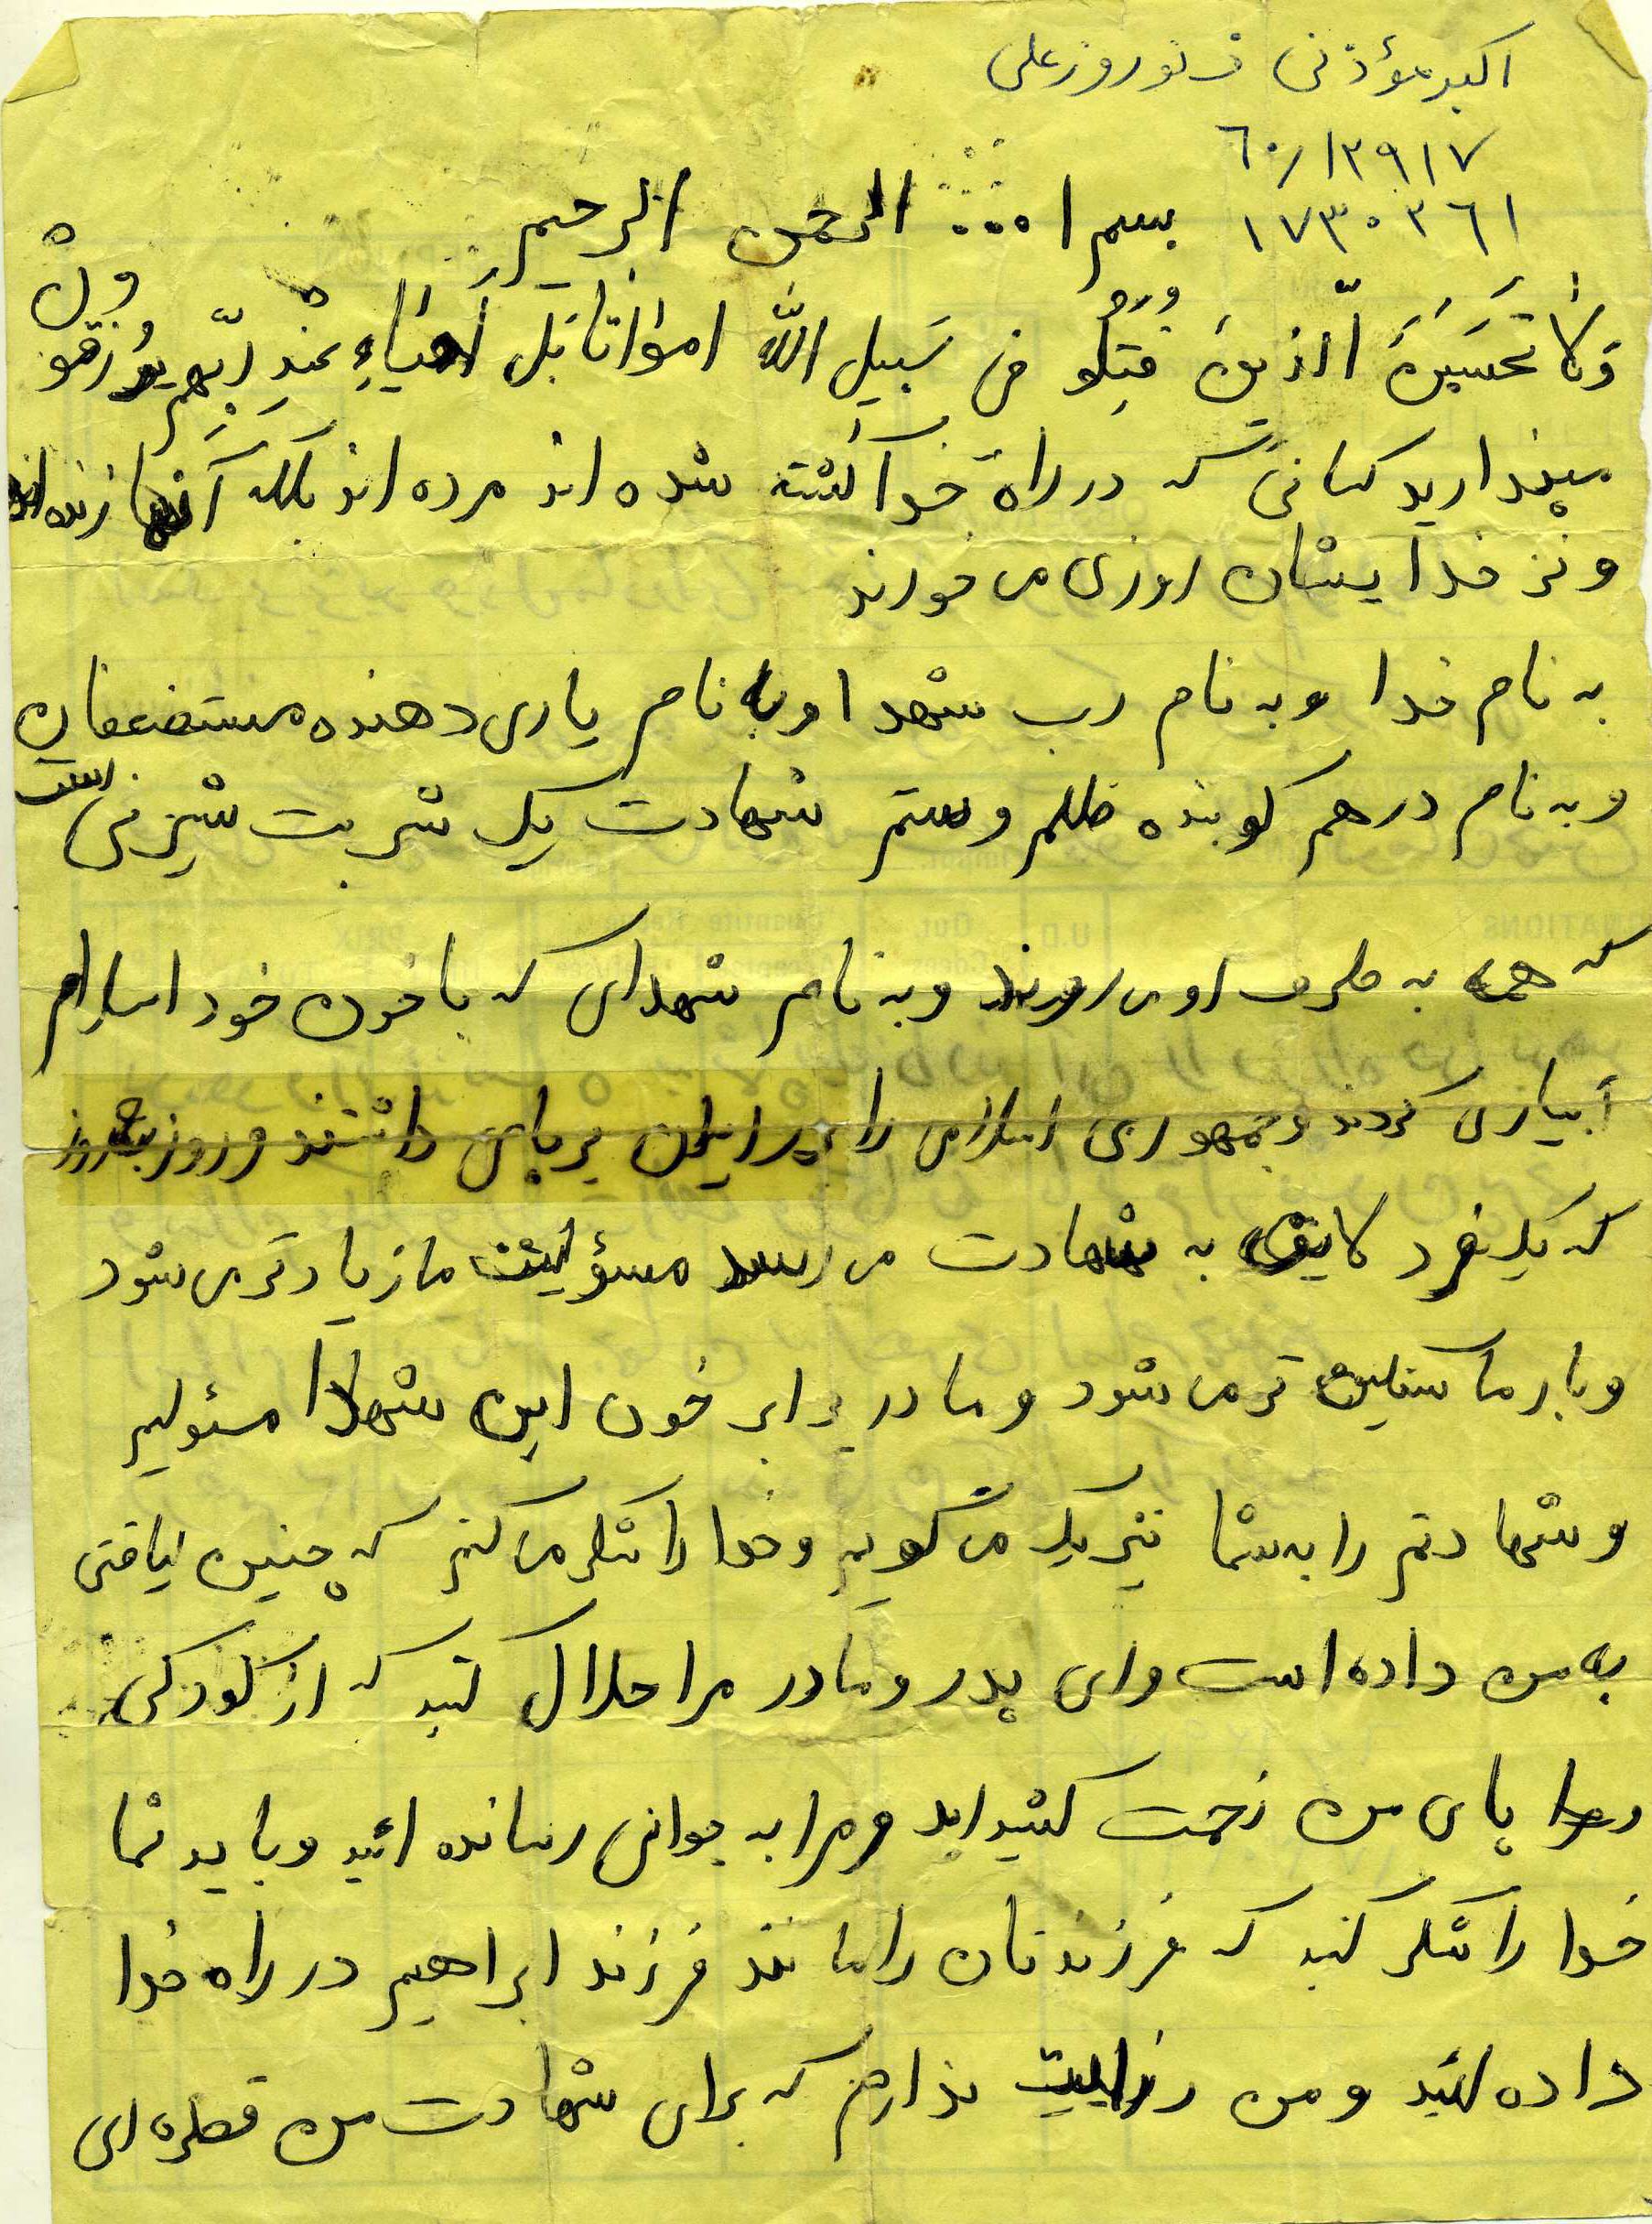 اکبر مؤذنی ف نوروزعلی
٦٠/١٢٩١٧
١٧٣٠٢٦١
بسم ا... الرحمن الرحیم
وَلا تَحسَبَنَ الّذینَ قُتِلُو فی سَبیلِ اللّه امواتا بَل اَحیَاءِ عِندِ رَبّهِم یُرزَقوونْ
مپندارید کسانی که در راه خدا کشته شده اند مرده اند بلکه آنها زنده اند
و نزد خدایشان روزی می خورند
به نام خدا و به نام رب شهدا و به نام یاری دهنده مستضعفان
و به نام درهم کوبنده ظلم و ستم شهادت یک شربت شیرینی است
که همه به طرف او می روند و به نام شهدای که با خون خود اسلام
آبیاری کردند و جمهوری اسلامی را در ایران برپای داشتند و روز بروز
که یک نفرد لایق به شهادت می رسد مسؤلیت ما زیادتر می شود
و بار ما سنگین تر می شود و ما در برابر خون این شهدا مسئولیم
و شهادتم را به شما تبریک می گویم و خدا را شکر می کنم که چنین لیاقتی
به من داده است و ای پدر و مادر مرا حلال کنید که از کودکی
پای من زحمت کشیداید و مرا به جوانی رسانده ائید و باید شما
خدا را شکر کنید که فرزندتان را مانند فرزند ابراهیم در راه خدا
داده ائید و من رضایت ندارم که برای شهادت من قطره ای